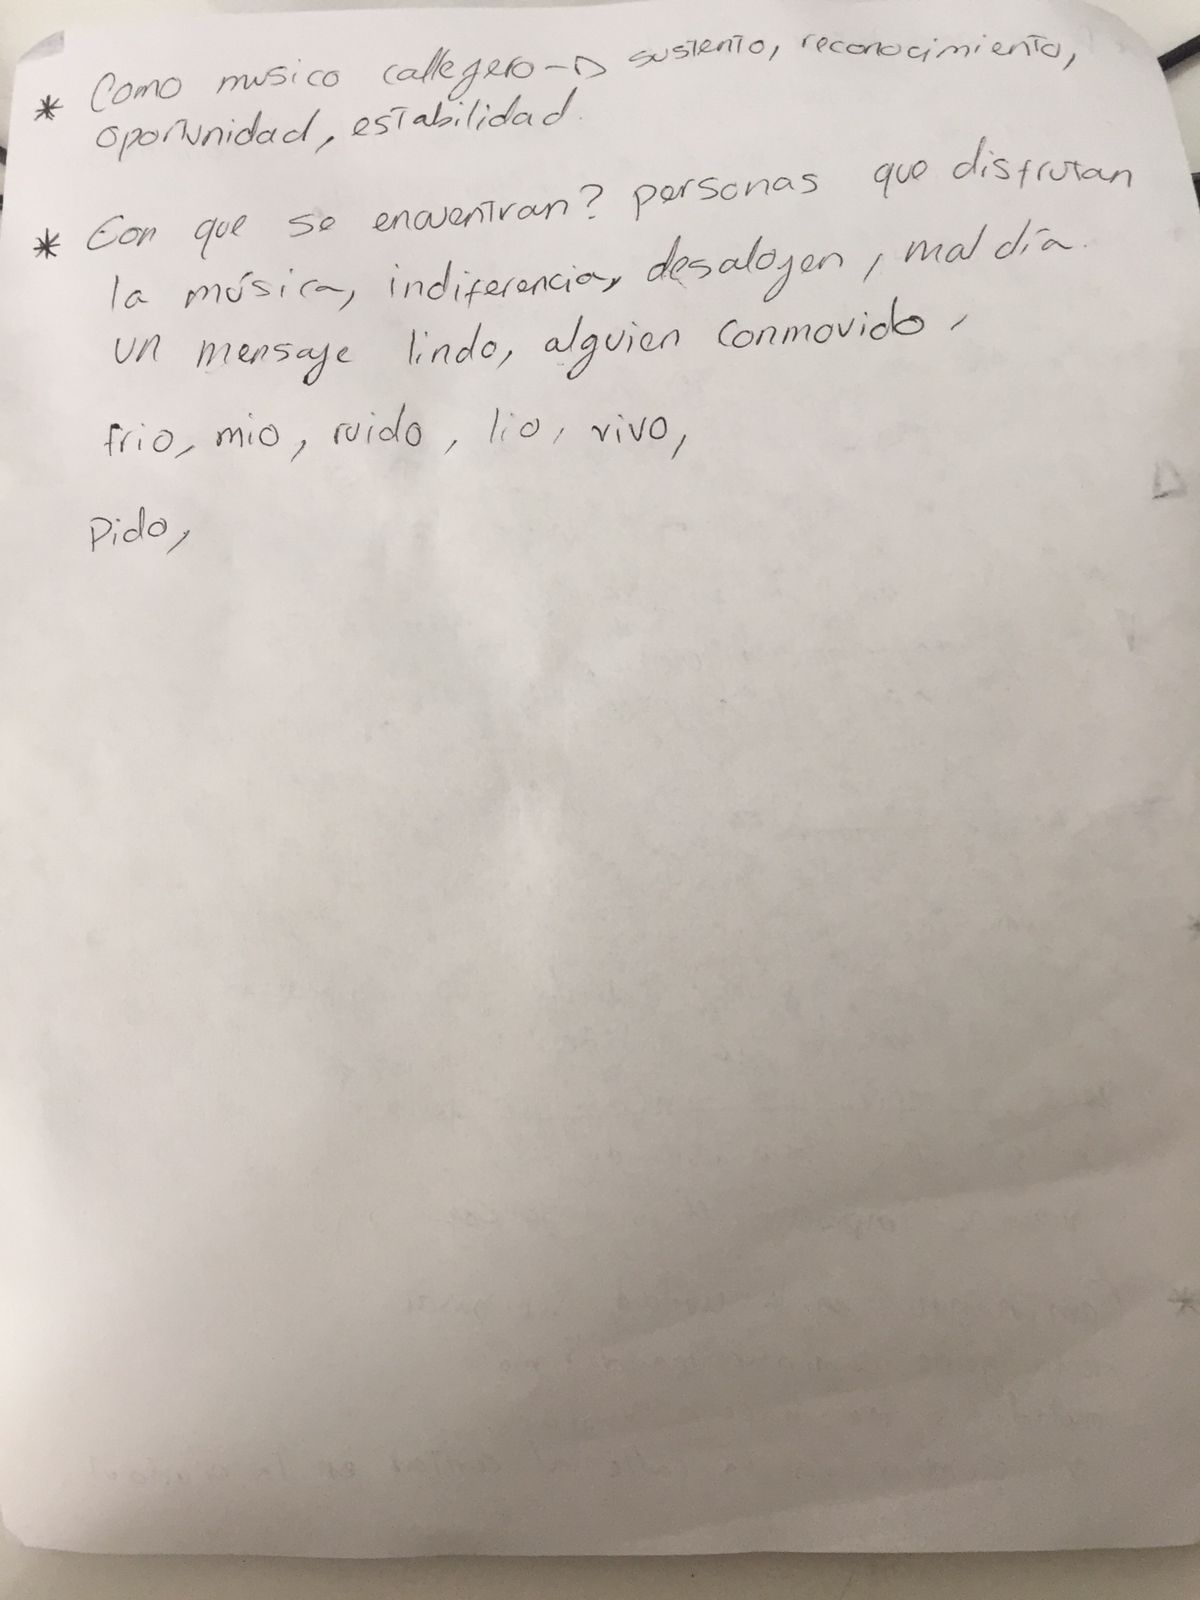 * Como musico callegero → sustento, reconocimiento,
oportunidad, estabilidad.
* Con que se encuentran? personas que disfrutan
la música, indiferencia, desalogen, mal día.
un mensaje lindo, alguien conmovido,
frio, mio, ruido, lio, vivo,
Pido,